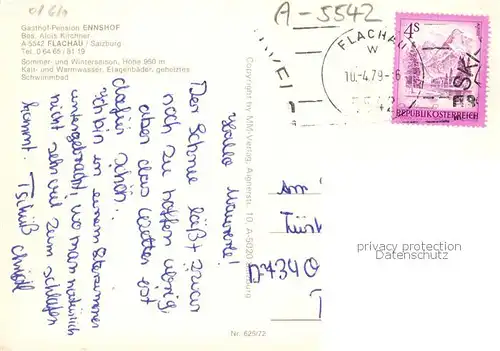 A-5542
Gasthof-Pension ENNSHOF
Bes. Alois Kirchner
A-5542 FLACHAU / Salzburg
Tel. 0 64 66 / 81 19
Sommer- und Wintersaison, Höhe 960 m
Kalt- und Warmwasser, Etagenbäder, geheiztes
Schwimmbad
FLACHAU
10.-4.79-
5542
4S
REPUBLIK ÖSTERREICH
Hallo
Der Schnee läßt zwar
noch zu hoffen übrig,
aber das Wetter ist
dafür schön.
Ich bin in einem 6terzimmer
untergebracht, wo man natürlich
nicht sehr viel zum schlafen
kommt. Tschüß
Copyright by MM-Verlag, Aignerstr. 10, A-5020 Salzburg
An
D-7340
privacy protection
Datenschutz
Nr. 625/72